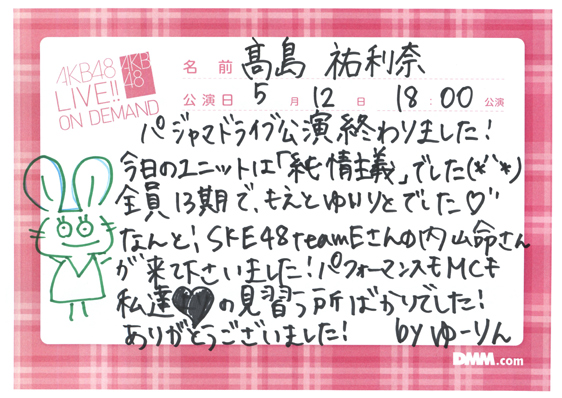 AKB48
LIVE!!
ON DEMAND
AKB
48
名前 髙島 祐利奈
公演日 5月 12日 18:00公演
パジャマドライブ公演終わりました!
今日のユニットは「純情主義」でした(*´`*)
全員13期で、もえとゆりりとでした♡"
なんと!SKE48teamEさんの内山命さん
が来て下さいました!パフォーマンスもMCも
私達♥の見習う所ばかりでした!
ありがとうございました! byゆーりん
DMM.com